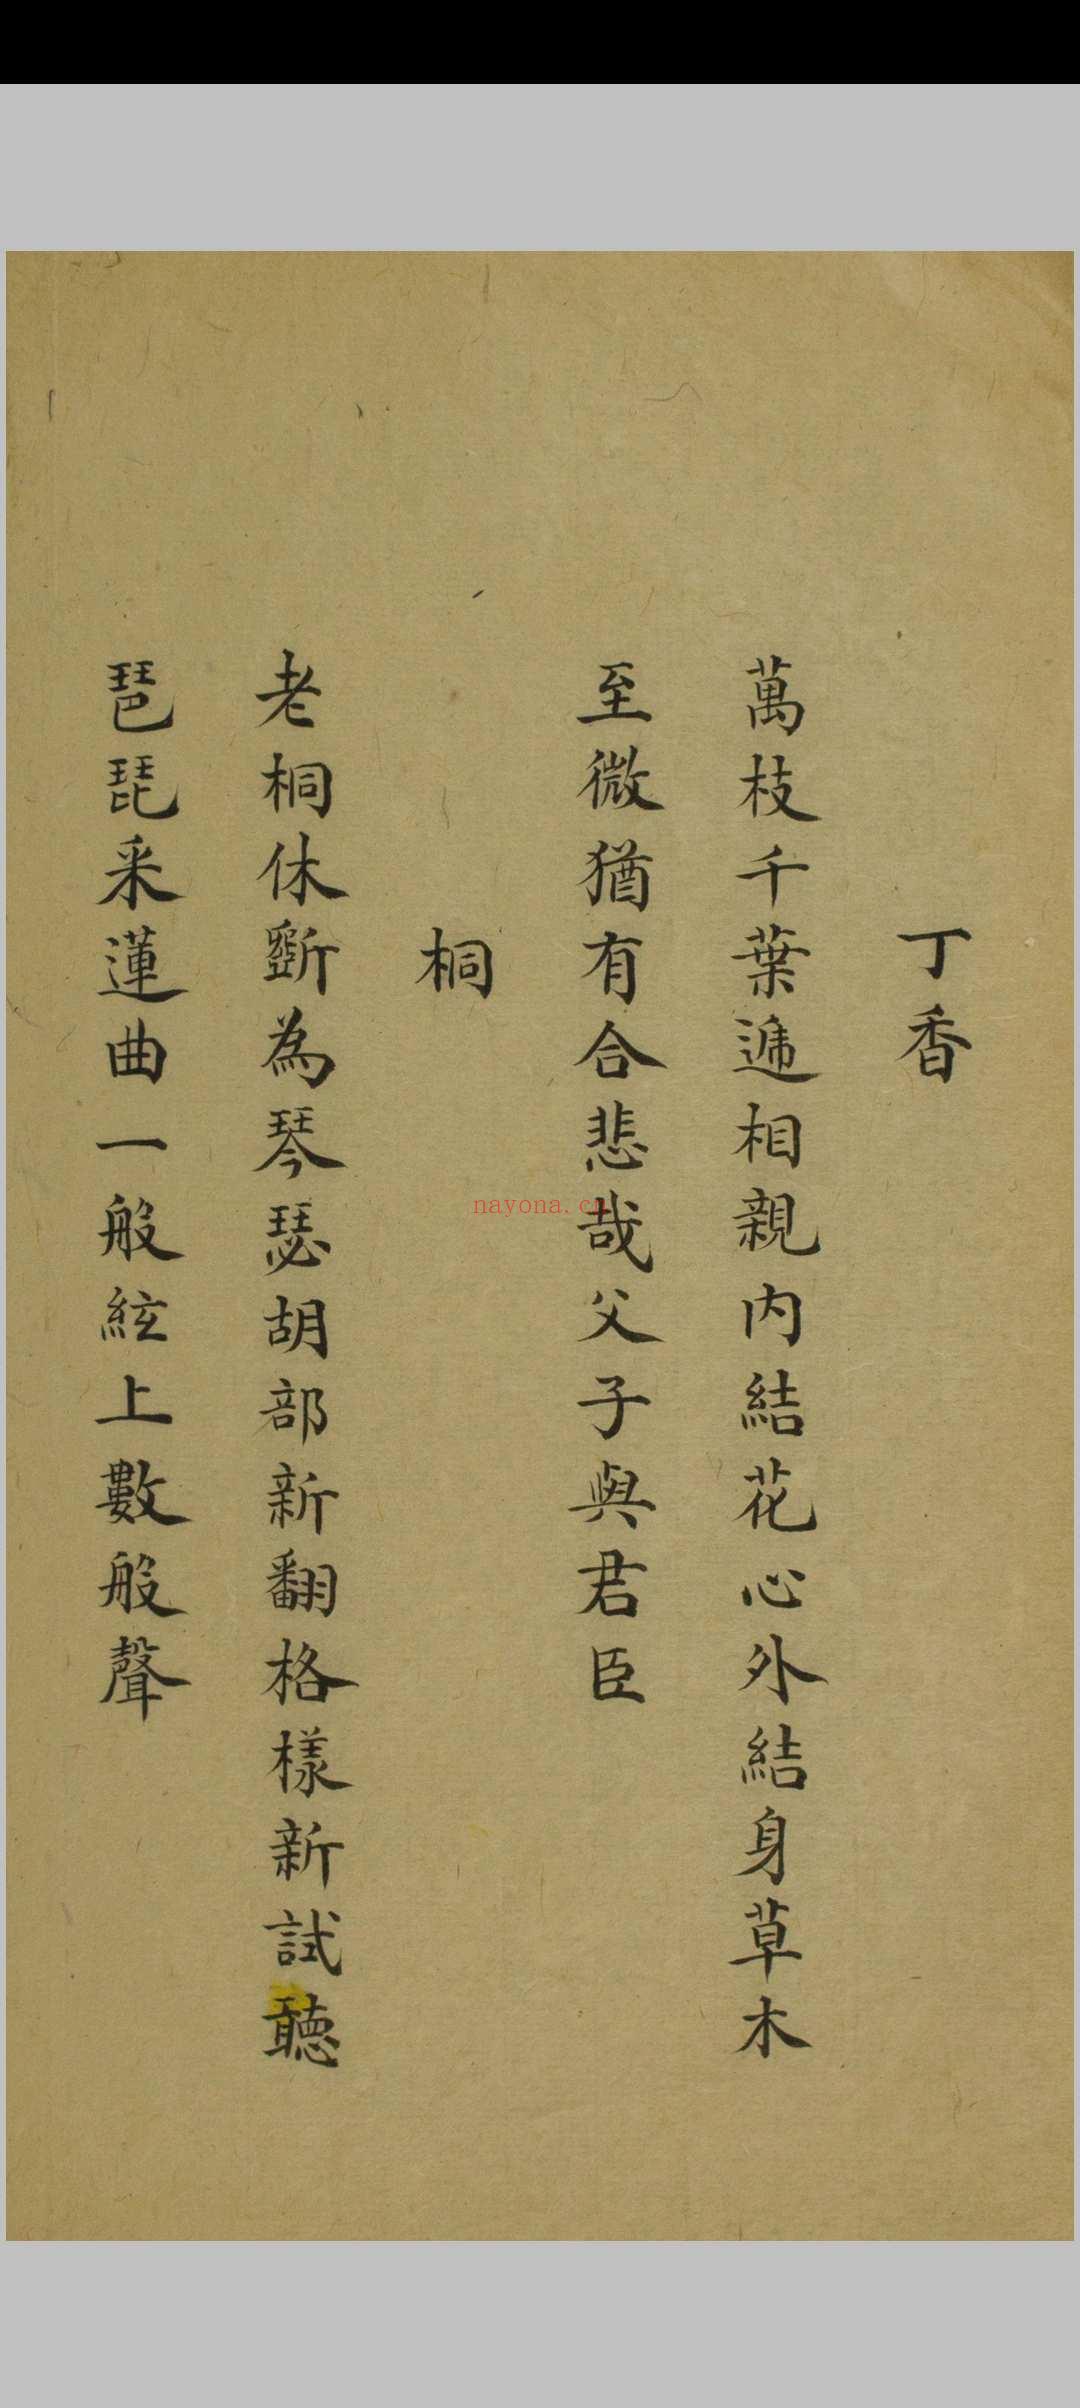 丁香
萬枝千葉遞相親内結花心外結身草木
至微猶有合悲哉父子與君臣
桐
老桐休斵為琴瑟胡部新翻格樣新試聽
琶琵采蓮曲一般絃上數般聲
nayona.cn